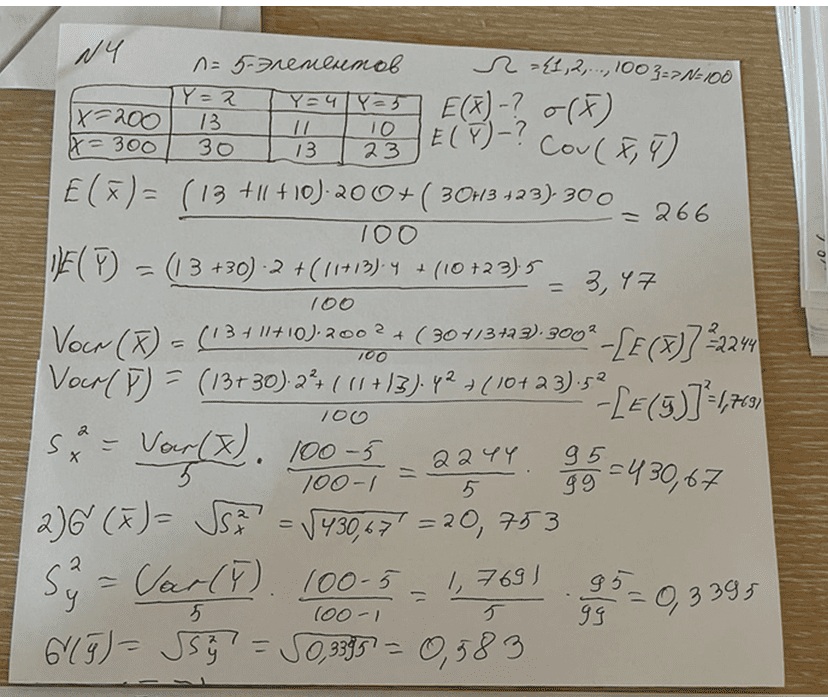 N4
n = 5-элементов Ω = {1,2,..,100} => N=100
Y=2 Y=4 Y=5 E(X̄)-? σ(X̄)
X=200 13 11 10 E(Ȳ)-? Cov(X̄,Ȳ)
X=300 30 13 23
E(X̄) = (13+11+10)·200+(30+13+23)·300 / 100 = 266
1) E(Ȳ) = (13+30)·2+(11+13)·4+(10+23)·5 / 100 = 3,47
Var(X̄) = (13+11+10)·200²+(30+13+23)·300² / 100 - [E(X̄)]² = 2244
Var(Ȳ) = (13+30)·2²+(11+13)·4²+(10+23)·5² / 100 - [E(ȳ)]² = 1,7691
Sx² = Var(X̄) / 5 · 100-5 / 100-1 = 2244 / 5 · 95 / 99 = 430,67
2) σ(x̄) = √Sx² = √430,67 = 20,753
Sy² = Var(Ȳ) / 5 · 100-5 / 100-1 = 1,7691 / 5 · 95 / 99 = 0,3395
σ(ȳ) = √Sy² = √0,3395 = 0,583